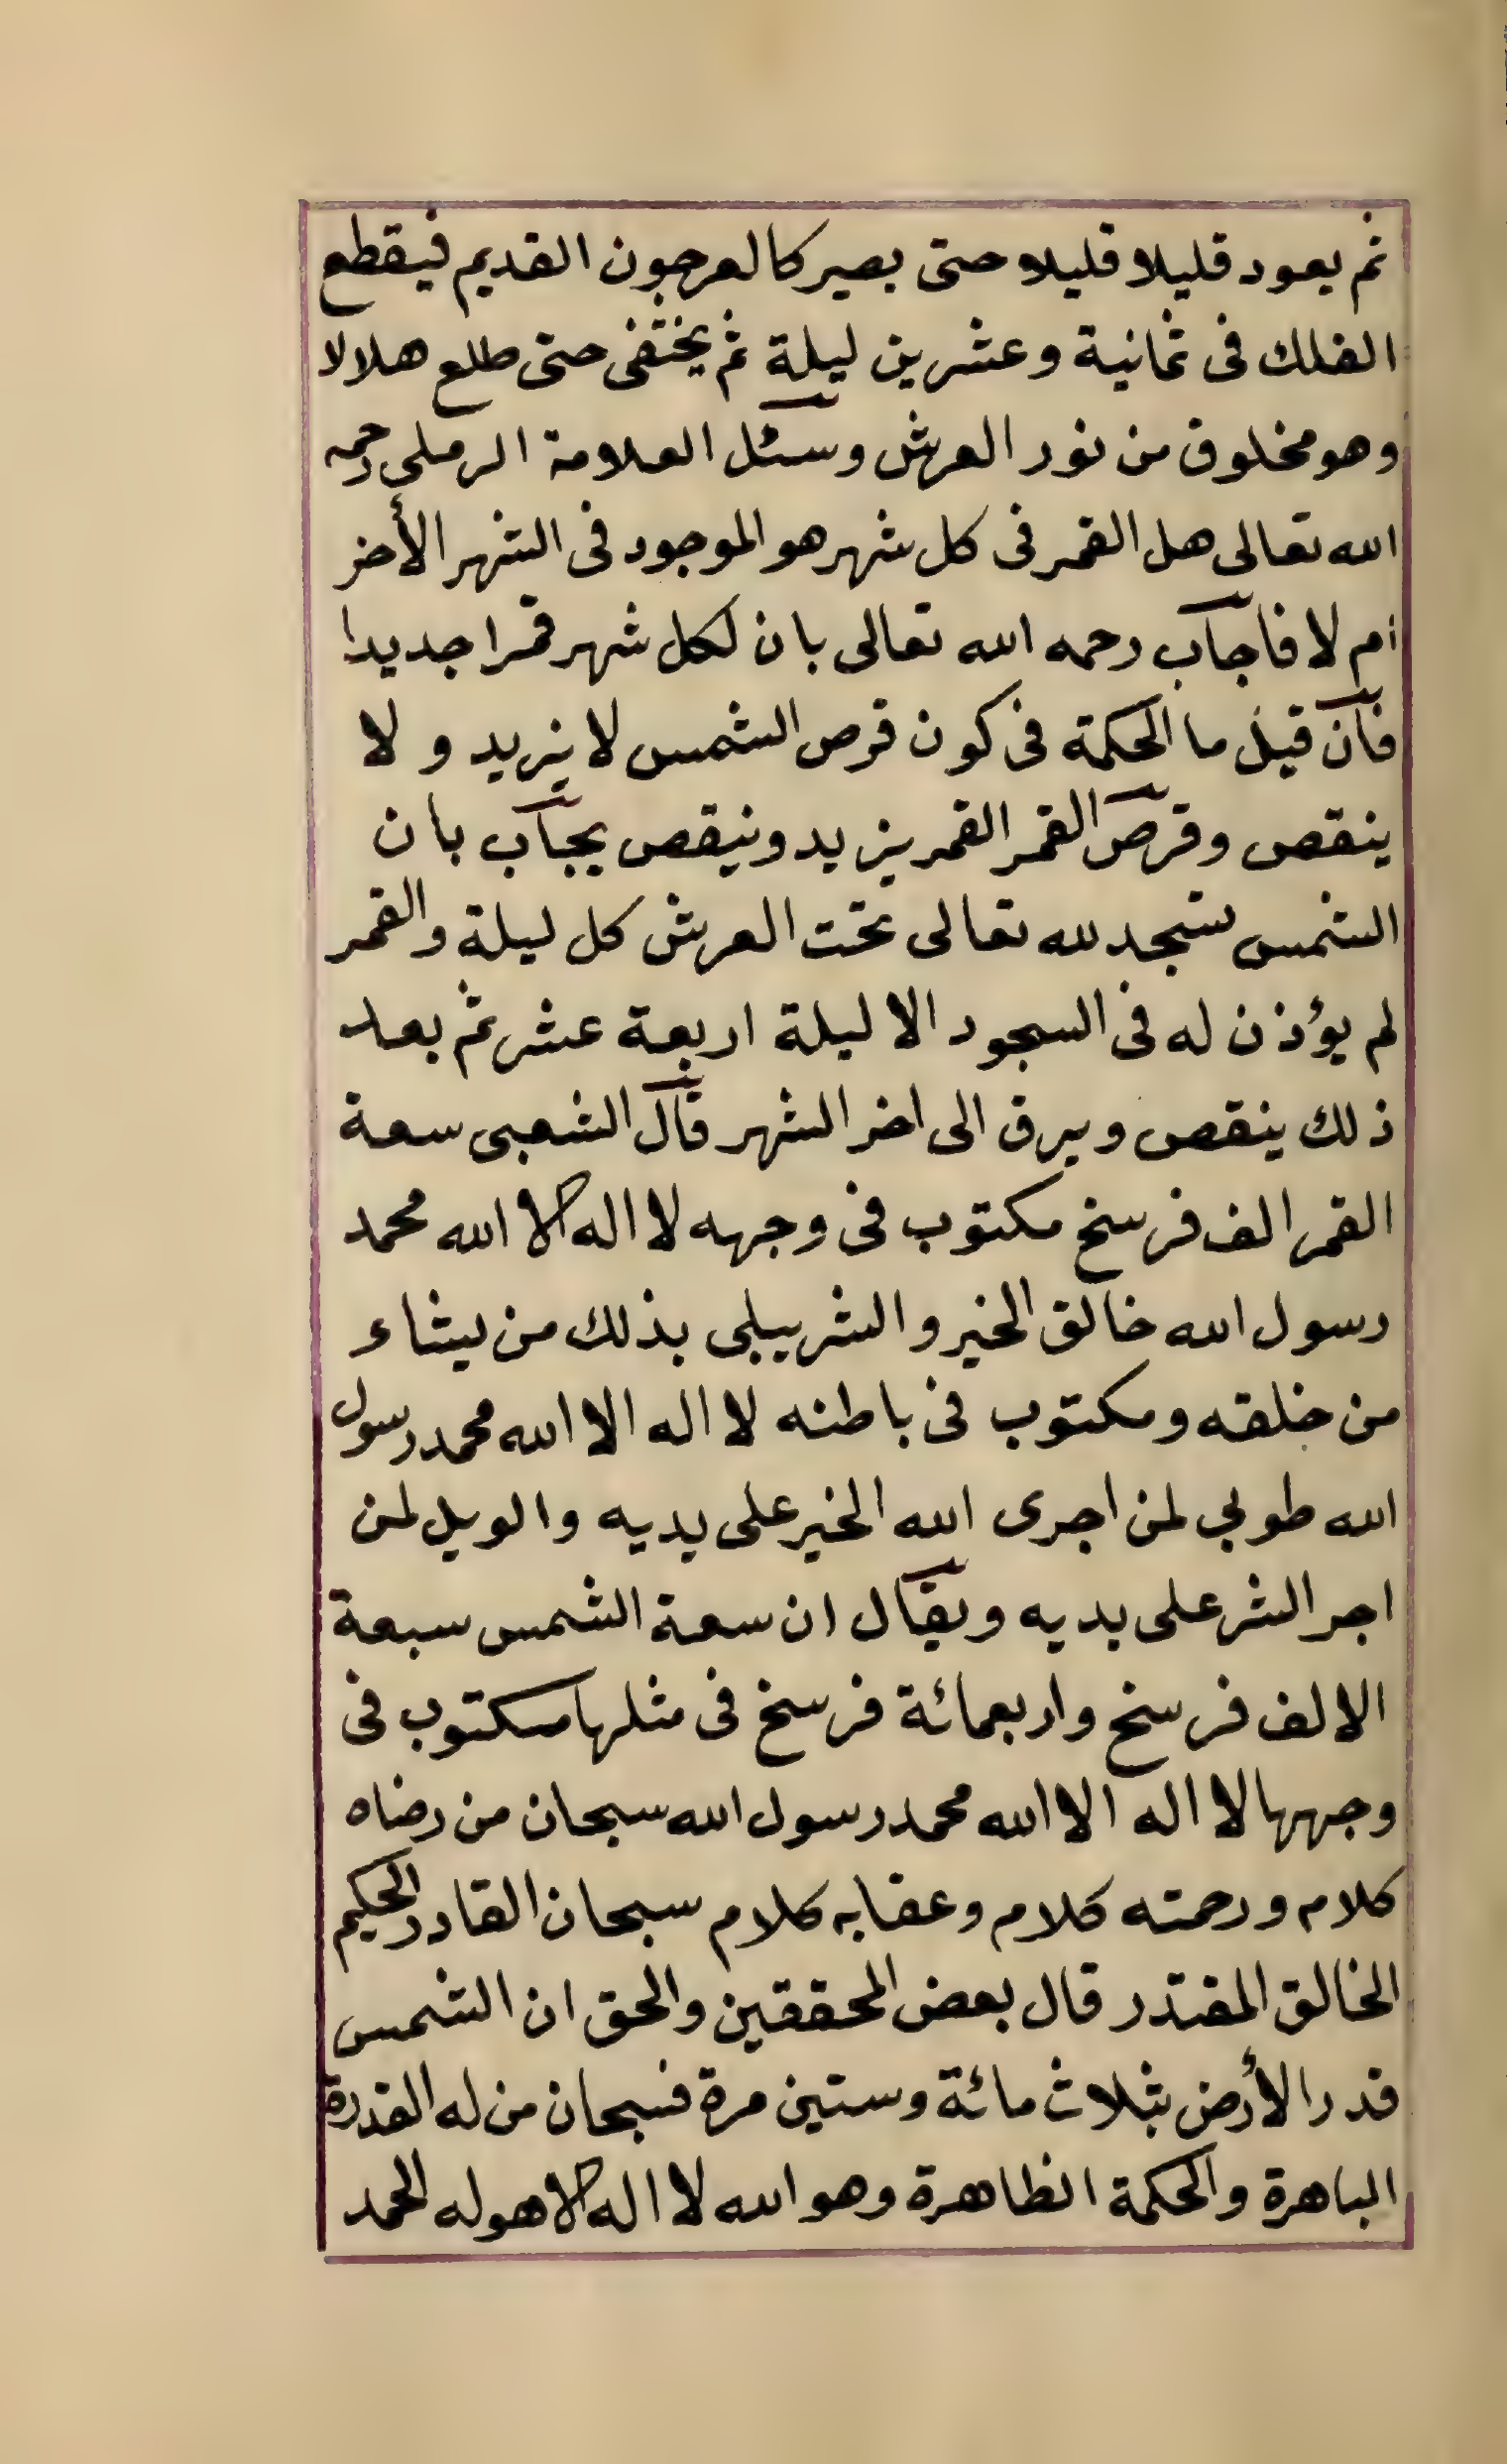 ثم يعود قليلا قليلا حتى يصير كالعرجون القديم فيقطع
الفلك فى ثمانية وعشرين ليلة ثم يختفى حتى طلع هلالا
وهو مخلوق من نور العرش وسئل العلامة الرملى رحمه
الله تعالى هل القمر فى كل شهر هو الموجود فى الشهر الأخر
ام لا فاجاب رحمه الله تعالى بان لكل شهر قمرا جديدا
فان قيل ما الحكمة فى كون قرص الشمس لا يزيد ولا
ينقص وقرص القمر القمر يزيد وينقص يجاب بان
الشمس تسجد لله تعالى تحت العرش كل ليلة والقمر
لم يؤذن له فى السجود الا ليلة اربعة عشر ثم بعد
ذلك ينقص ويرق الى اخر الشهر قال الشعبى سعة
القمر الف فرسخ مكتوب فى وجهه لا اله الا الله محمد
رسول الله خالق الخير والشر يبلى بذلك من يشاء
من خلقه ومكتوب فى باطنه لا اله الا الله محمد رسول
الله طوبى لمن اجرى الله الخير على يديه والويل لمن
اجر الشر على يديه ويقال ان سعة الشمس سبعة
الالف فرسخ واربعمائة فرسخ فى مثلها مكتوب فى
وجهها لا اله الا الله محمد رسول الله سبحان من رضاه
كلام ورحمته كلام وعقابه كلام سبحان القادر الحكيم
الخالق المقتدر قال بعض المحققين والحق ان الشمس
قدر الأرض بثلاث مائة وستين مرة فسبحان من له القدرة
الباهرة والحكمة الظاهرة وهو الله لا اله الا هو له الحمد